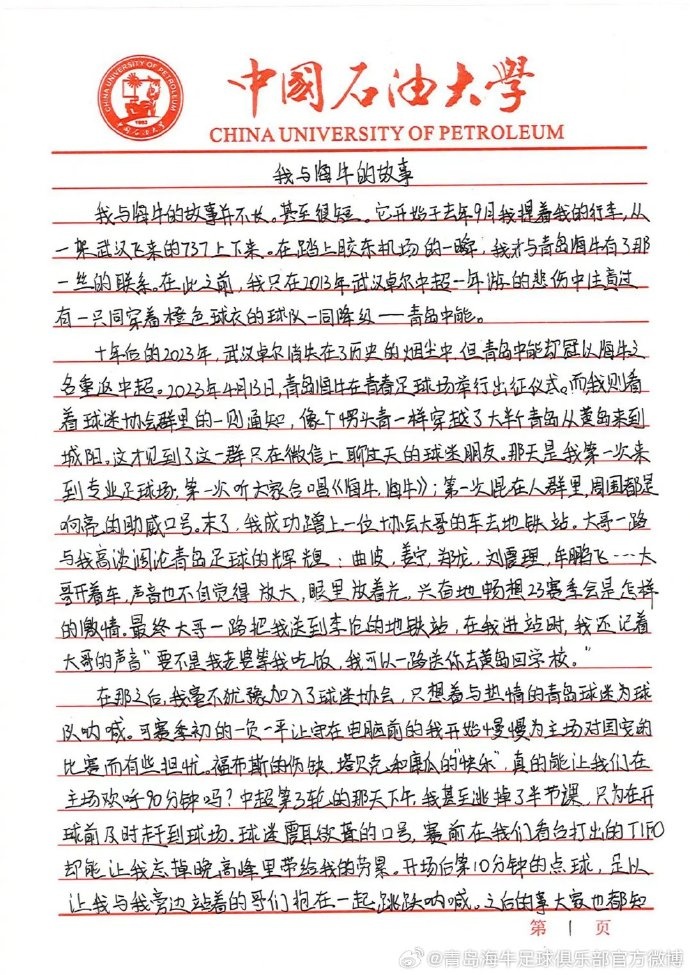 CHINA UNIVERSITY OF PETROLEUM
1953
中国石油大学
中國石油大学
CHINA UNIVERSITY OF PETROLEUM
我与海牛的故事
我与海牛的故事并不长。甚至很短。它开始于去年9月我提着我的行李,从
一架武汉飞来的737上下来。在踏上胶东机场的一瞬,我才与青岛海牛有了那
一丝的联系。在此之前,我只在2013年武汉卓尔中超一年游的悲伤中注意过
有一只同穿着橙色球衣的球队一同降级——青岛中能。
十年后的2023年,武汉卓尔消失在了历史的烟尘中,但青岛中能却冠以海牛之
名重返中超。2023年4月13日,青岛海牛在青春足球场举行出征仪式。而我则看
着球迷协会群里的一则通知,像个愣头青一样穿越了大半个青岛从黄岛来到
城阳。这才见到了这一群只在微信上聊过天的球迷朋友。那天是我第一次来
到专业足球场;第一次听大家合唱《海牛,海牛》;第一次混在人群里,周围都是
响亮的助威口号。末了,我成功蹭上一位协会大哥的车去地铁站。大哥一路
与我高谈阔论青岛足球的辉煌:曲波,姜宁,郑龙,刘震理,牟鹏飞……大
哥开着车,声音也不自觉得放大,眼里放着光,兴奋地畅想23赛季会是怎样
的激情。最终大哥一路把我送到李沧的地铁站,在我进站时,我还记着
大哥的声音“要不是我老婆等我吃饭,我可以一路送你去黄岛回学校。”
在那之后,我毫不犹豫加入了球迷协会,只想着与热情的青岛球迷为球
队呐喊。可赛季初的一负一平让守在电脑前的我开始慢慢为主场对国安的
比赛而有些担忧。福布斯的伤缺,塔贝克和康瓜的“快乐”,真的能让我们在
主场欢呼90分钟吗?中超第3轮的那天下午,我甚至逃掉了半节课,只为在开
球前及时赶到球场。球迷震耳欲聋的口号,赛前在我们看台打出的TIFO
却能让我忘掉晚高峰里带给我的劳累。开场后第10分钟的点球,足以
让我与我旁边站着的哥们抱在一起,跳跃呐喊。之后的事大家也都知
第1页
@青岛海牛足球俱乐部官方微博